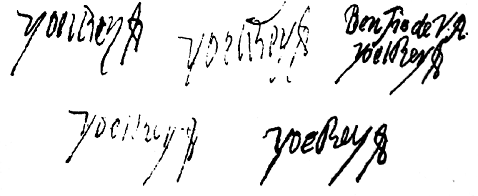 yoelRey
yoelRey
Ben Trade V.A.
yoelRey
yoelRey
yoeRey